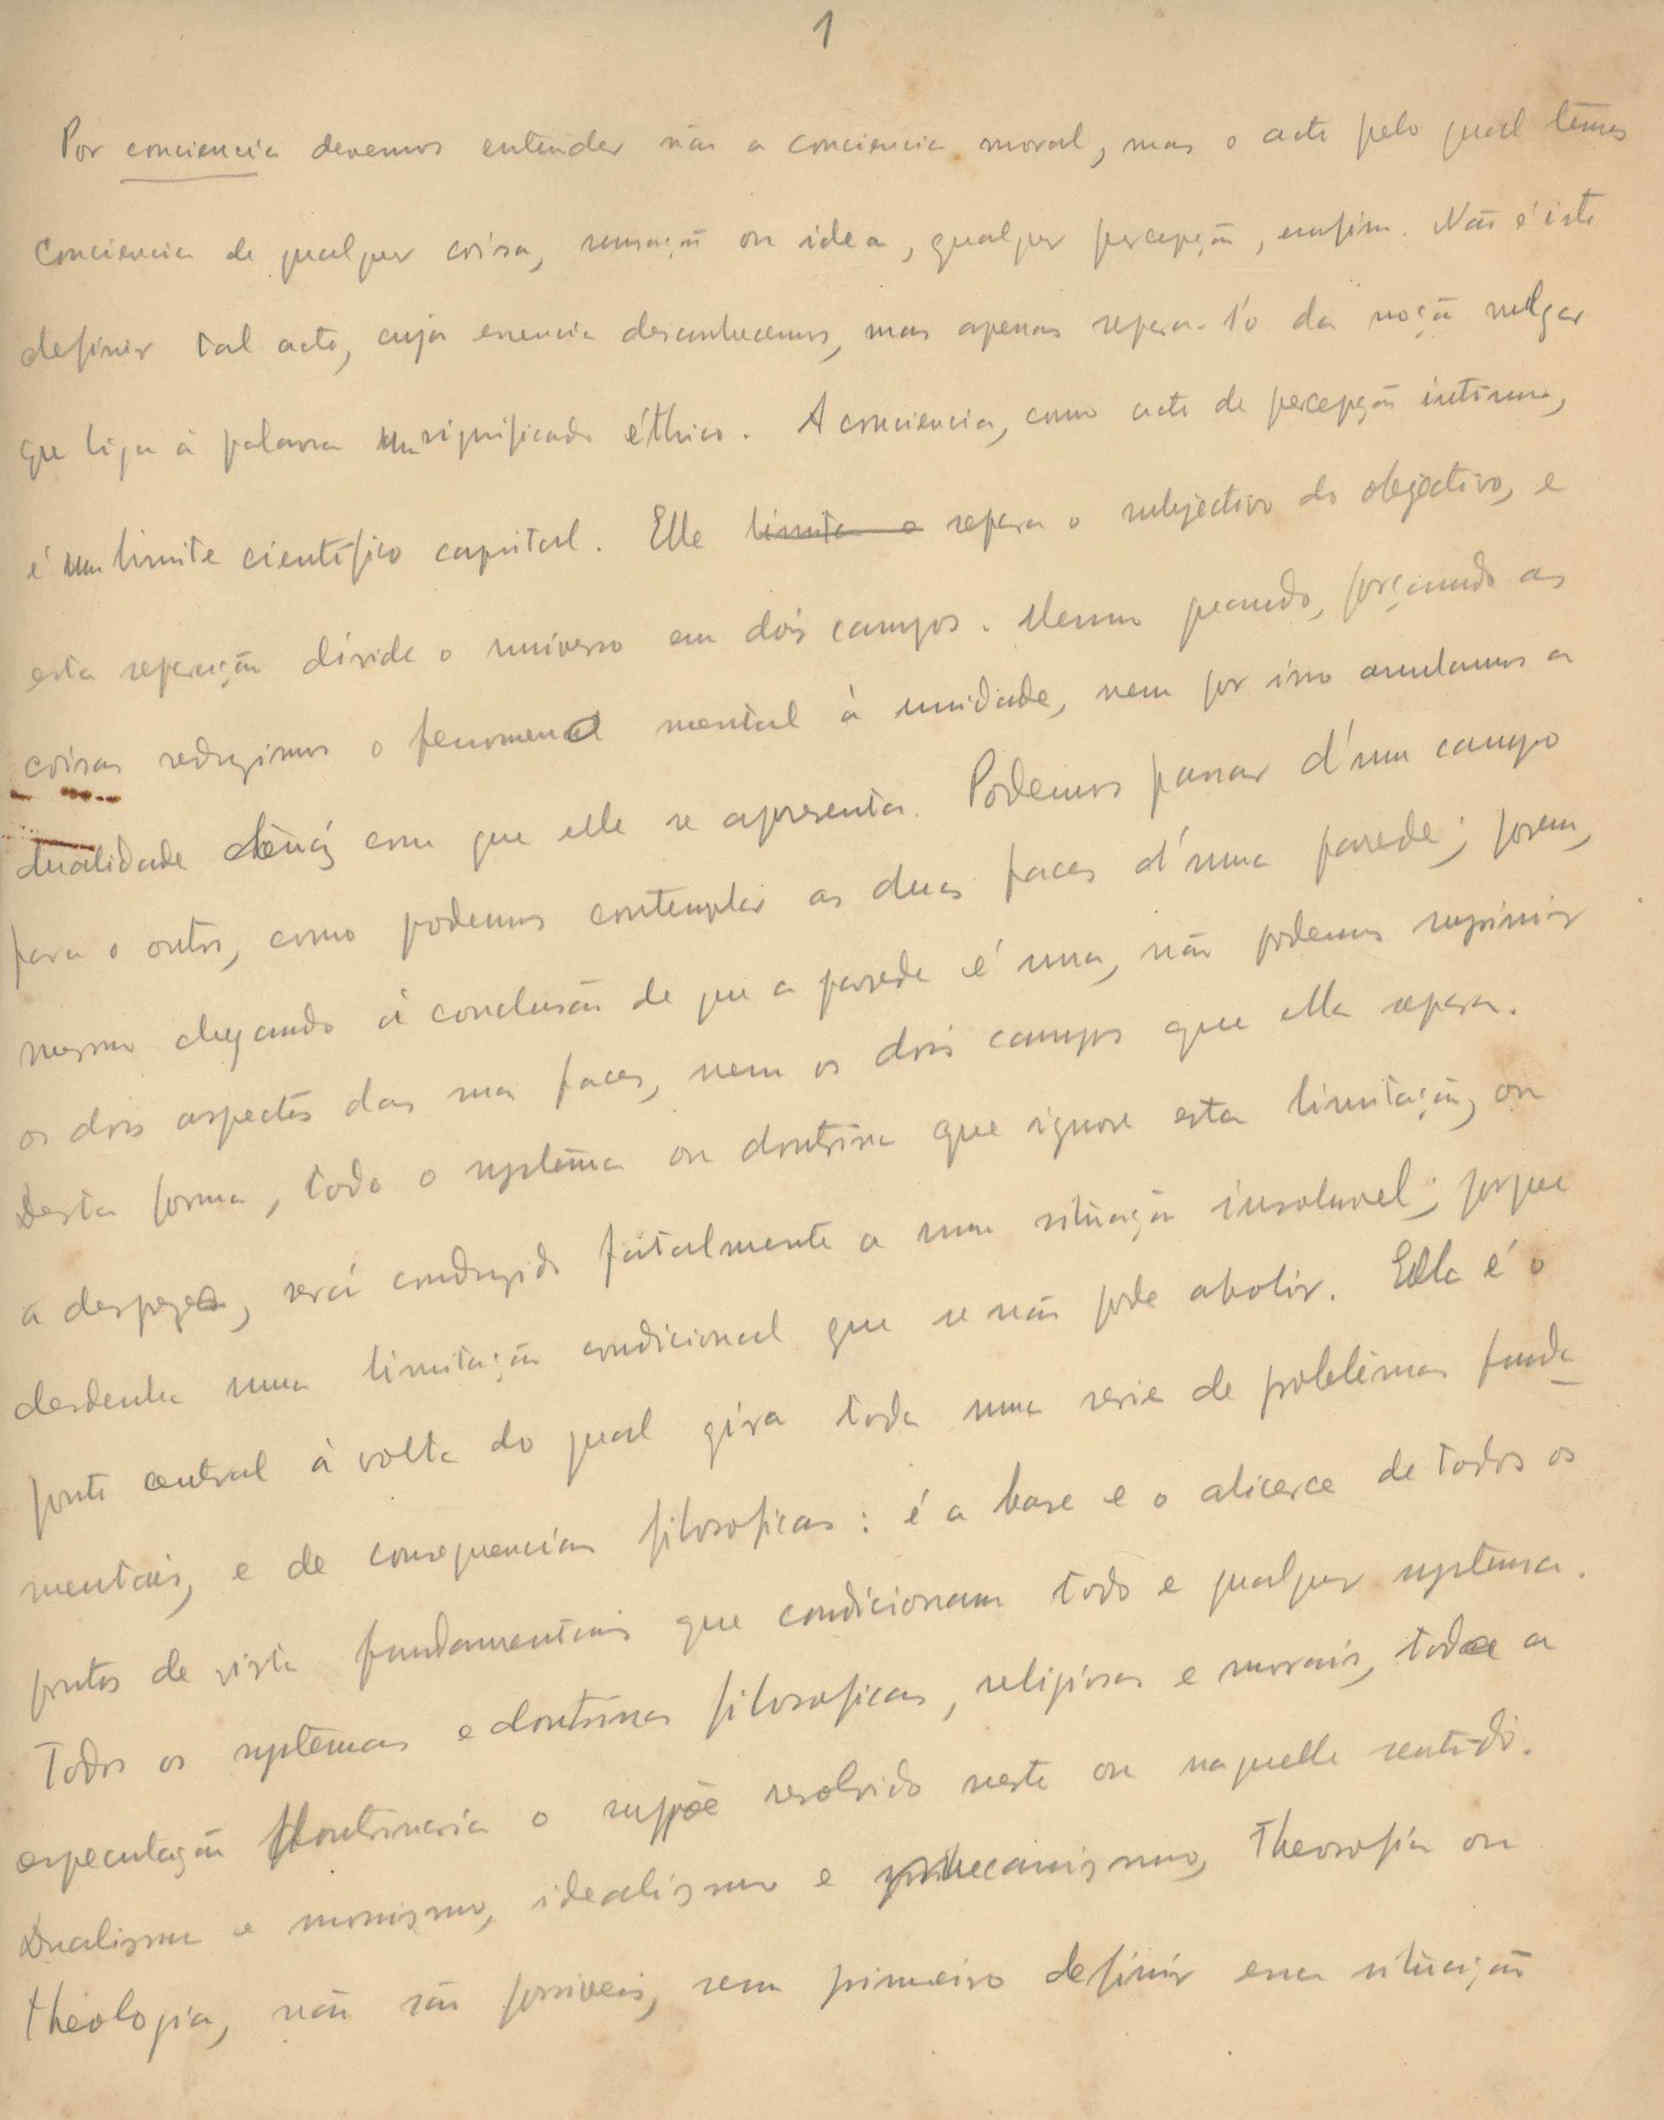 1
Por conciencia devemos entender não a conciencia moral, mas o acto pelo qual temos
conciencia de qualquer coisa, sensação ou idea, qualquer percepção, emfim. Não é isto
definir tal acto, cuja essencia desconhecemos, mas apenas separa-l'o da noção vulgar
que liga á palavra um significado éthico. A conciencia, como acto de percepção intima,
é um limite cientifico capital. Elle limita o separa o subjectivo do objectivo, e
esta separação divide o universo em dois campos. Mesmo quando, forçando as
coisas reduzimos o fenomeno mental à unidade, nem por isso anulamos a
dualidade tenáz com que elle se apresenta. Podemos passar d'um campo
para o outro, como podemos contemplar as duas faces d'uma parede; porem,
mesmo chegando á conclusão de que a parede é uma, não podemos suprimir
os dois aspectos das suas faces, nem os dois campos que ella separa.
Desta forma, todo o systema ou doutrina que ignore esta limitação, ou
a despreze, será conduzido fatalmente a uma situação insoluvel; porque
desdenha uma limitação condicional que se não pode abolir. Ella é o
ponto central à volta do qual gira toda uma serie de problemas funda
mentais, e de consequencias filosoficas: é a base e o alicerce de todos os
pontos de vista fundamentais que condicionam todo e qualquer systema.
Todos os systemas e doutrinas filosoficas, religiosas e morais, toda a
especulação doutrinaria o supõe resolvido neste ou naquelle sentido.
Dualismo e monismo, idealismo e mecanismo, Theosofia ou
theologia, não são possiveis, sem primeiro definir essa situação